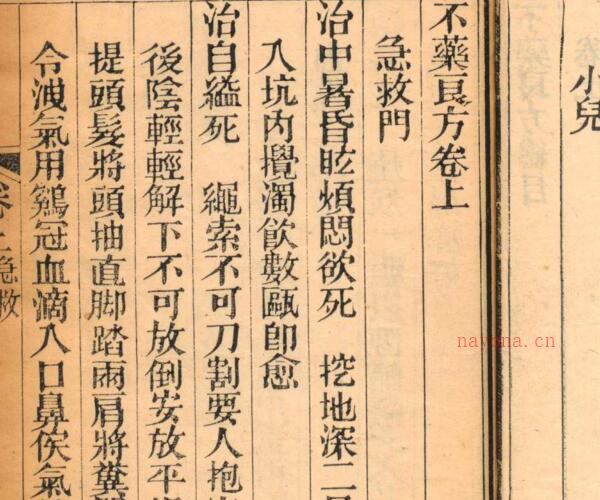 小兒
不藥良方卷上
急救門
治中暑昏眩煩悶欲死　挖地深二
入坑內攪濁飲數甌卽愈
治自縊死　繩索不可刀割要人抱
後陰輕輕解下不可放倒安放平
提頭髮將頭抽直脚踏兩肩將糞
令洩氣用鷄冠血滴入口鼻俟氣
卷上急救
nayona.cn